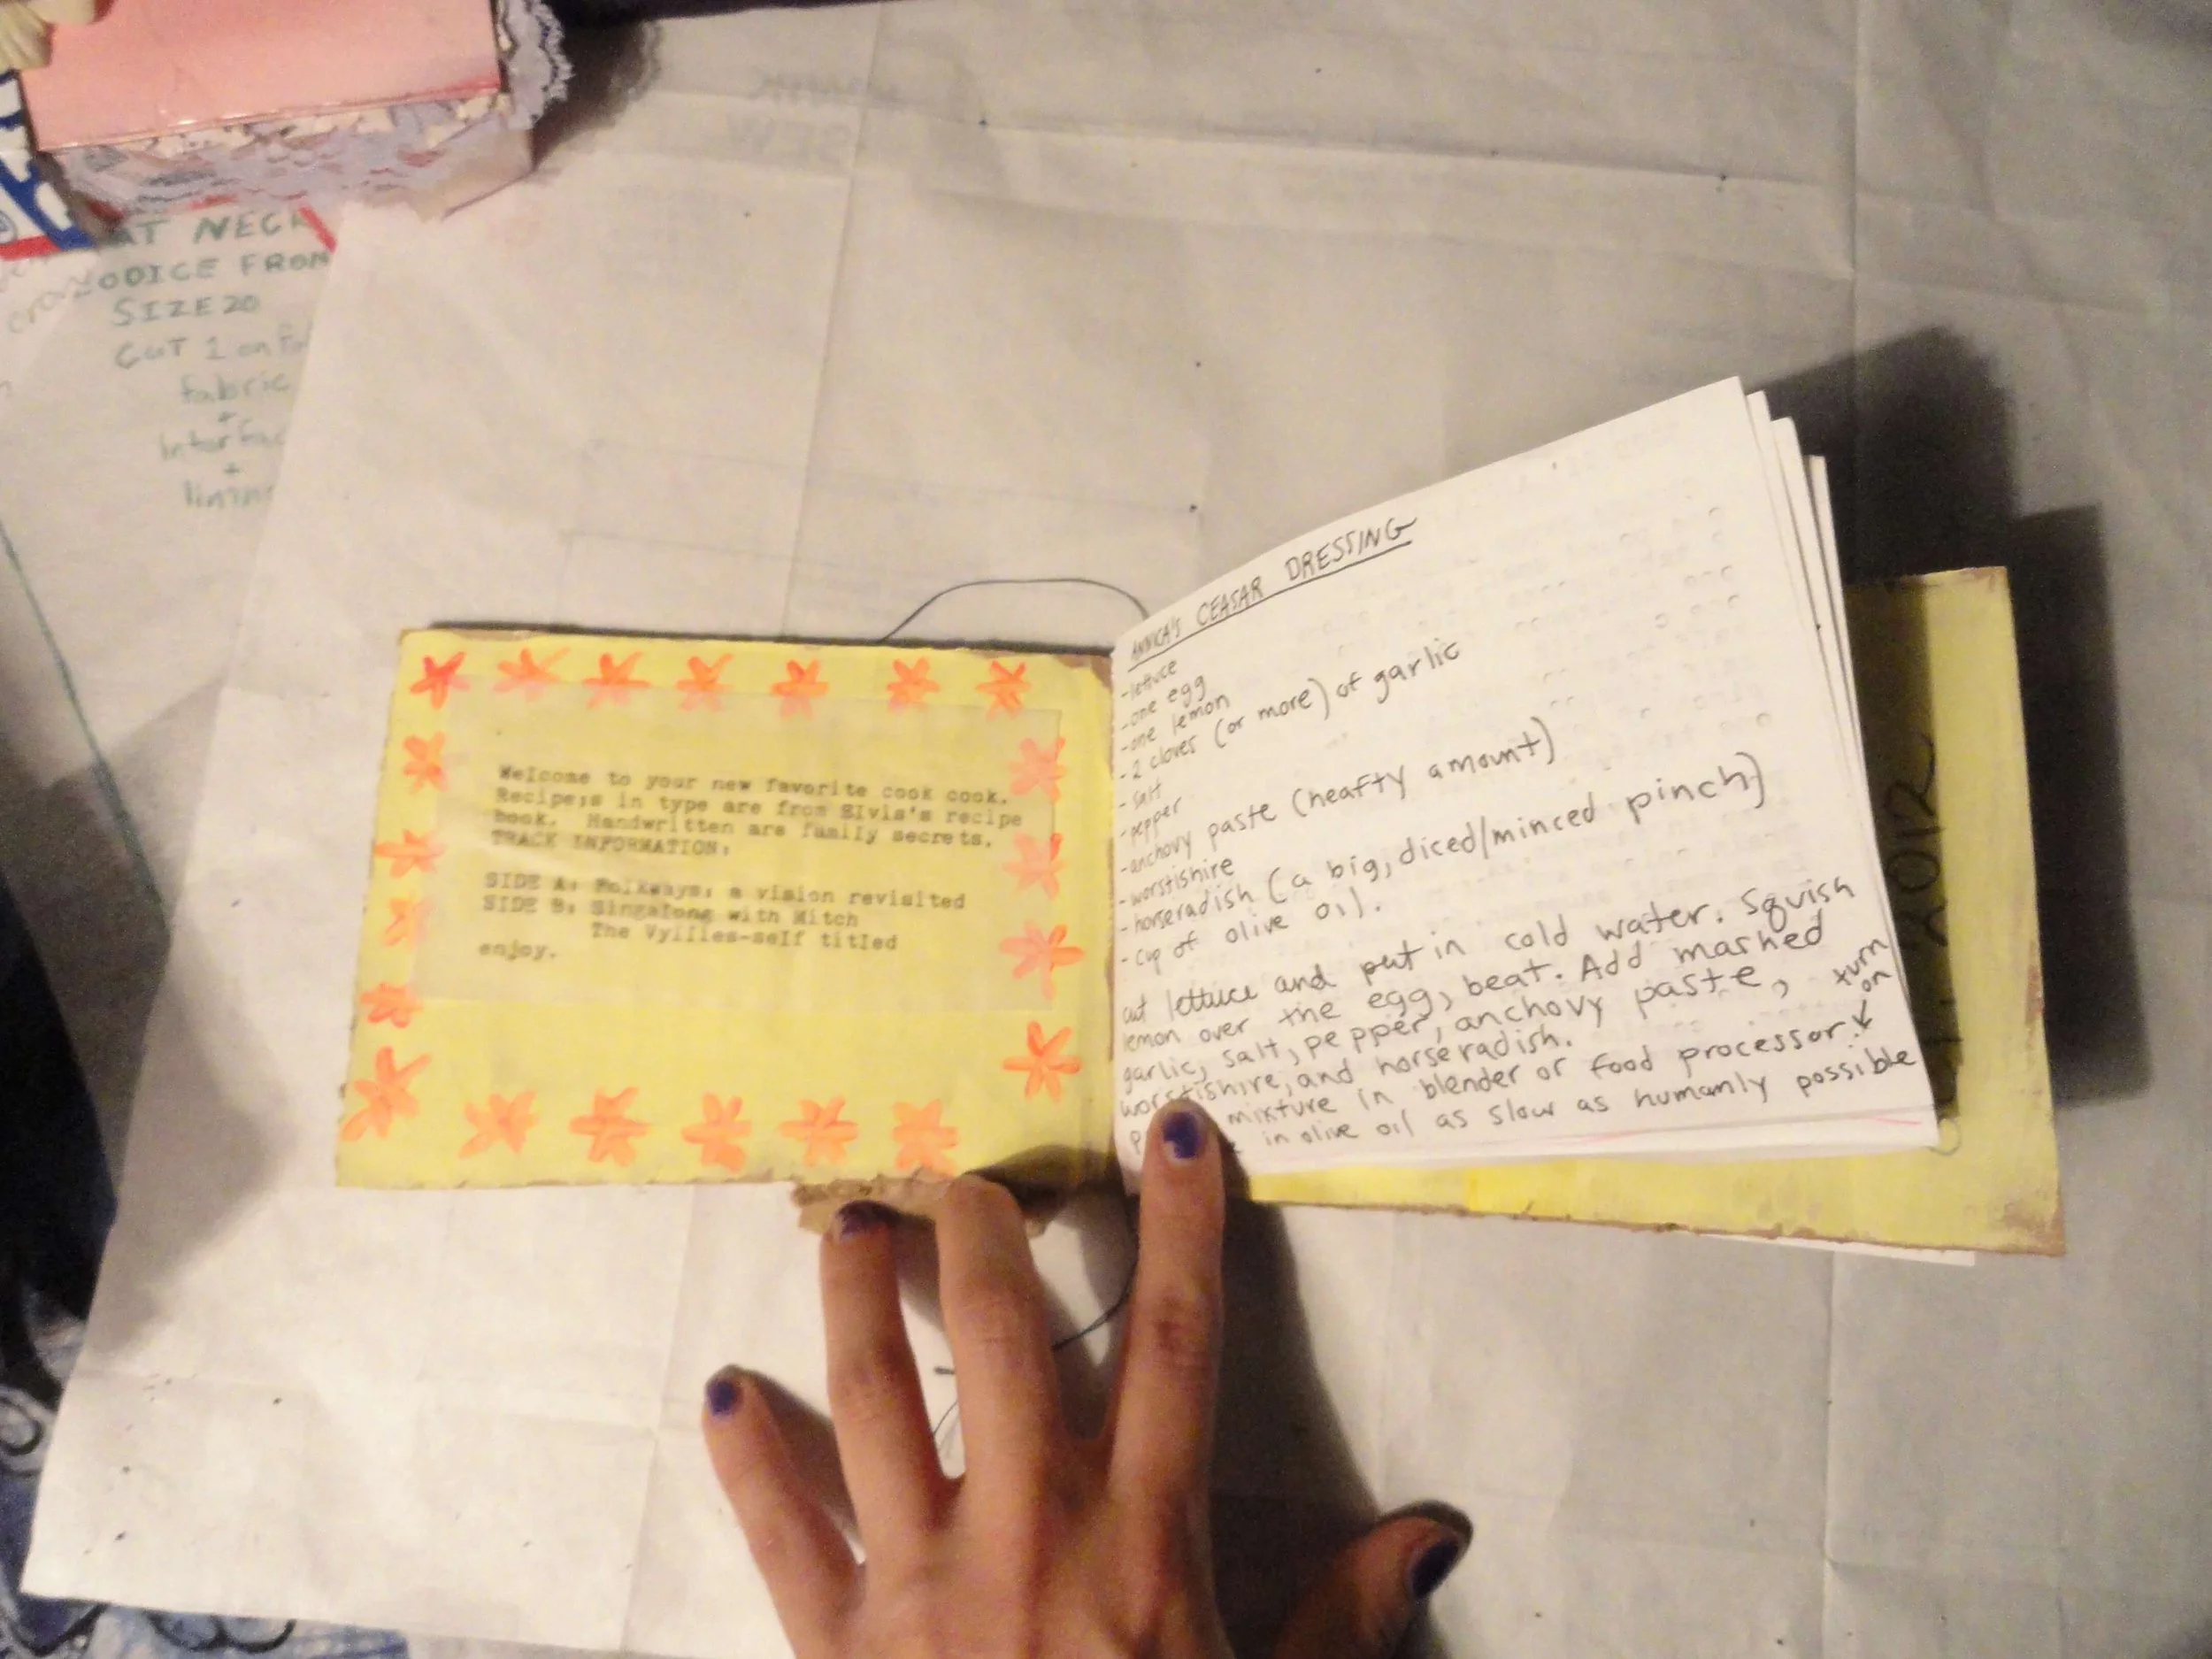 AT NECK
ODICE FRON
SIZE 20
CUT 1 on Fo
fabric
+
Interfac
+
lining
Welcome to your new favorite cook cook.
Recipe;s in type are from Elvis's recipe
book. Handwritten are family secrets.
TRACK INFORMATION:
SIDE A: Folkways: a vision revisited
SIDE B: Singalong with Mitch
The Vyllies-self titled
enjoy.
ANNICA'S CEASAR DRESSING
-lettuce
-one egg
-one lemon
-2 cloves (or more) of garlic
-salt
-pepper
-anchovy paste (heafty amount)
-worstishire
-horseradish (a big, diced/minced pinch)
-cup of olive oil.
cut lettuce and put in cold water. Squish
lemon over the egg, beat. Add mashed
garlic, salt, pepper, anchovy paste,
worstishire, and horseradish.
mixture in blender or food processor. turn on ↓
in olive oil as slow as humanly possible
2012